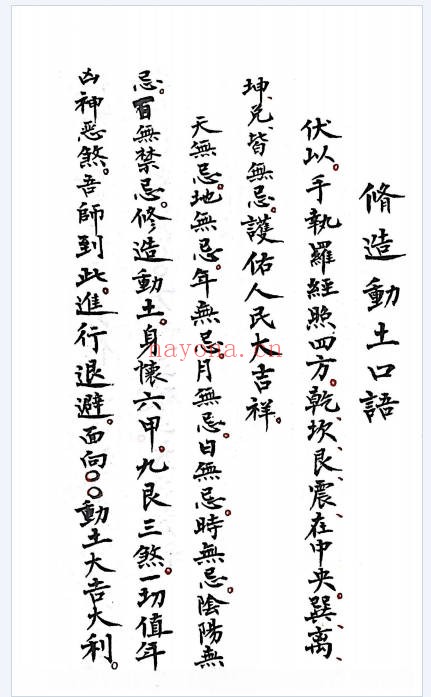 脩造動土口語
伏以。手執羅經照四方。乾、坎、艮、震、在中央。巽、离、
坤、兑、皆無忌。護佑人民大吉祥。
天無忌。地無忌。年無忌。月無忌。日無忌。時無忌。陰陽無
忌。百無禁忌。修造動土。身懷六甲。九艮三煞。一切值年
凶神惡煞。吾師到此。進行退避。面向○○動土大吉大利。
nayona.cn